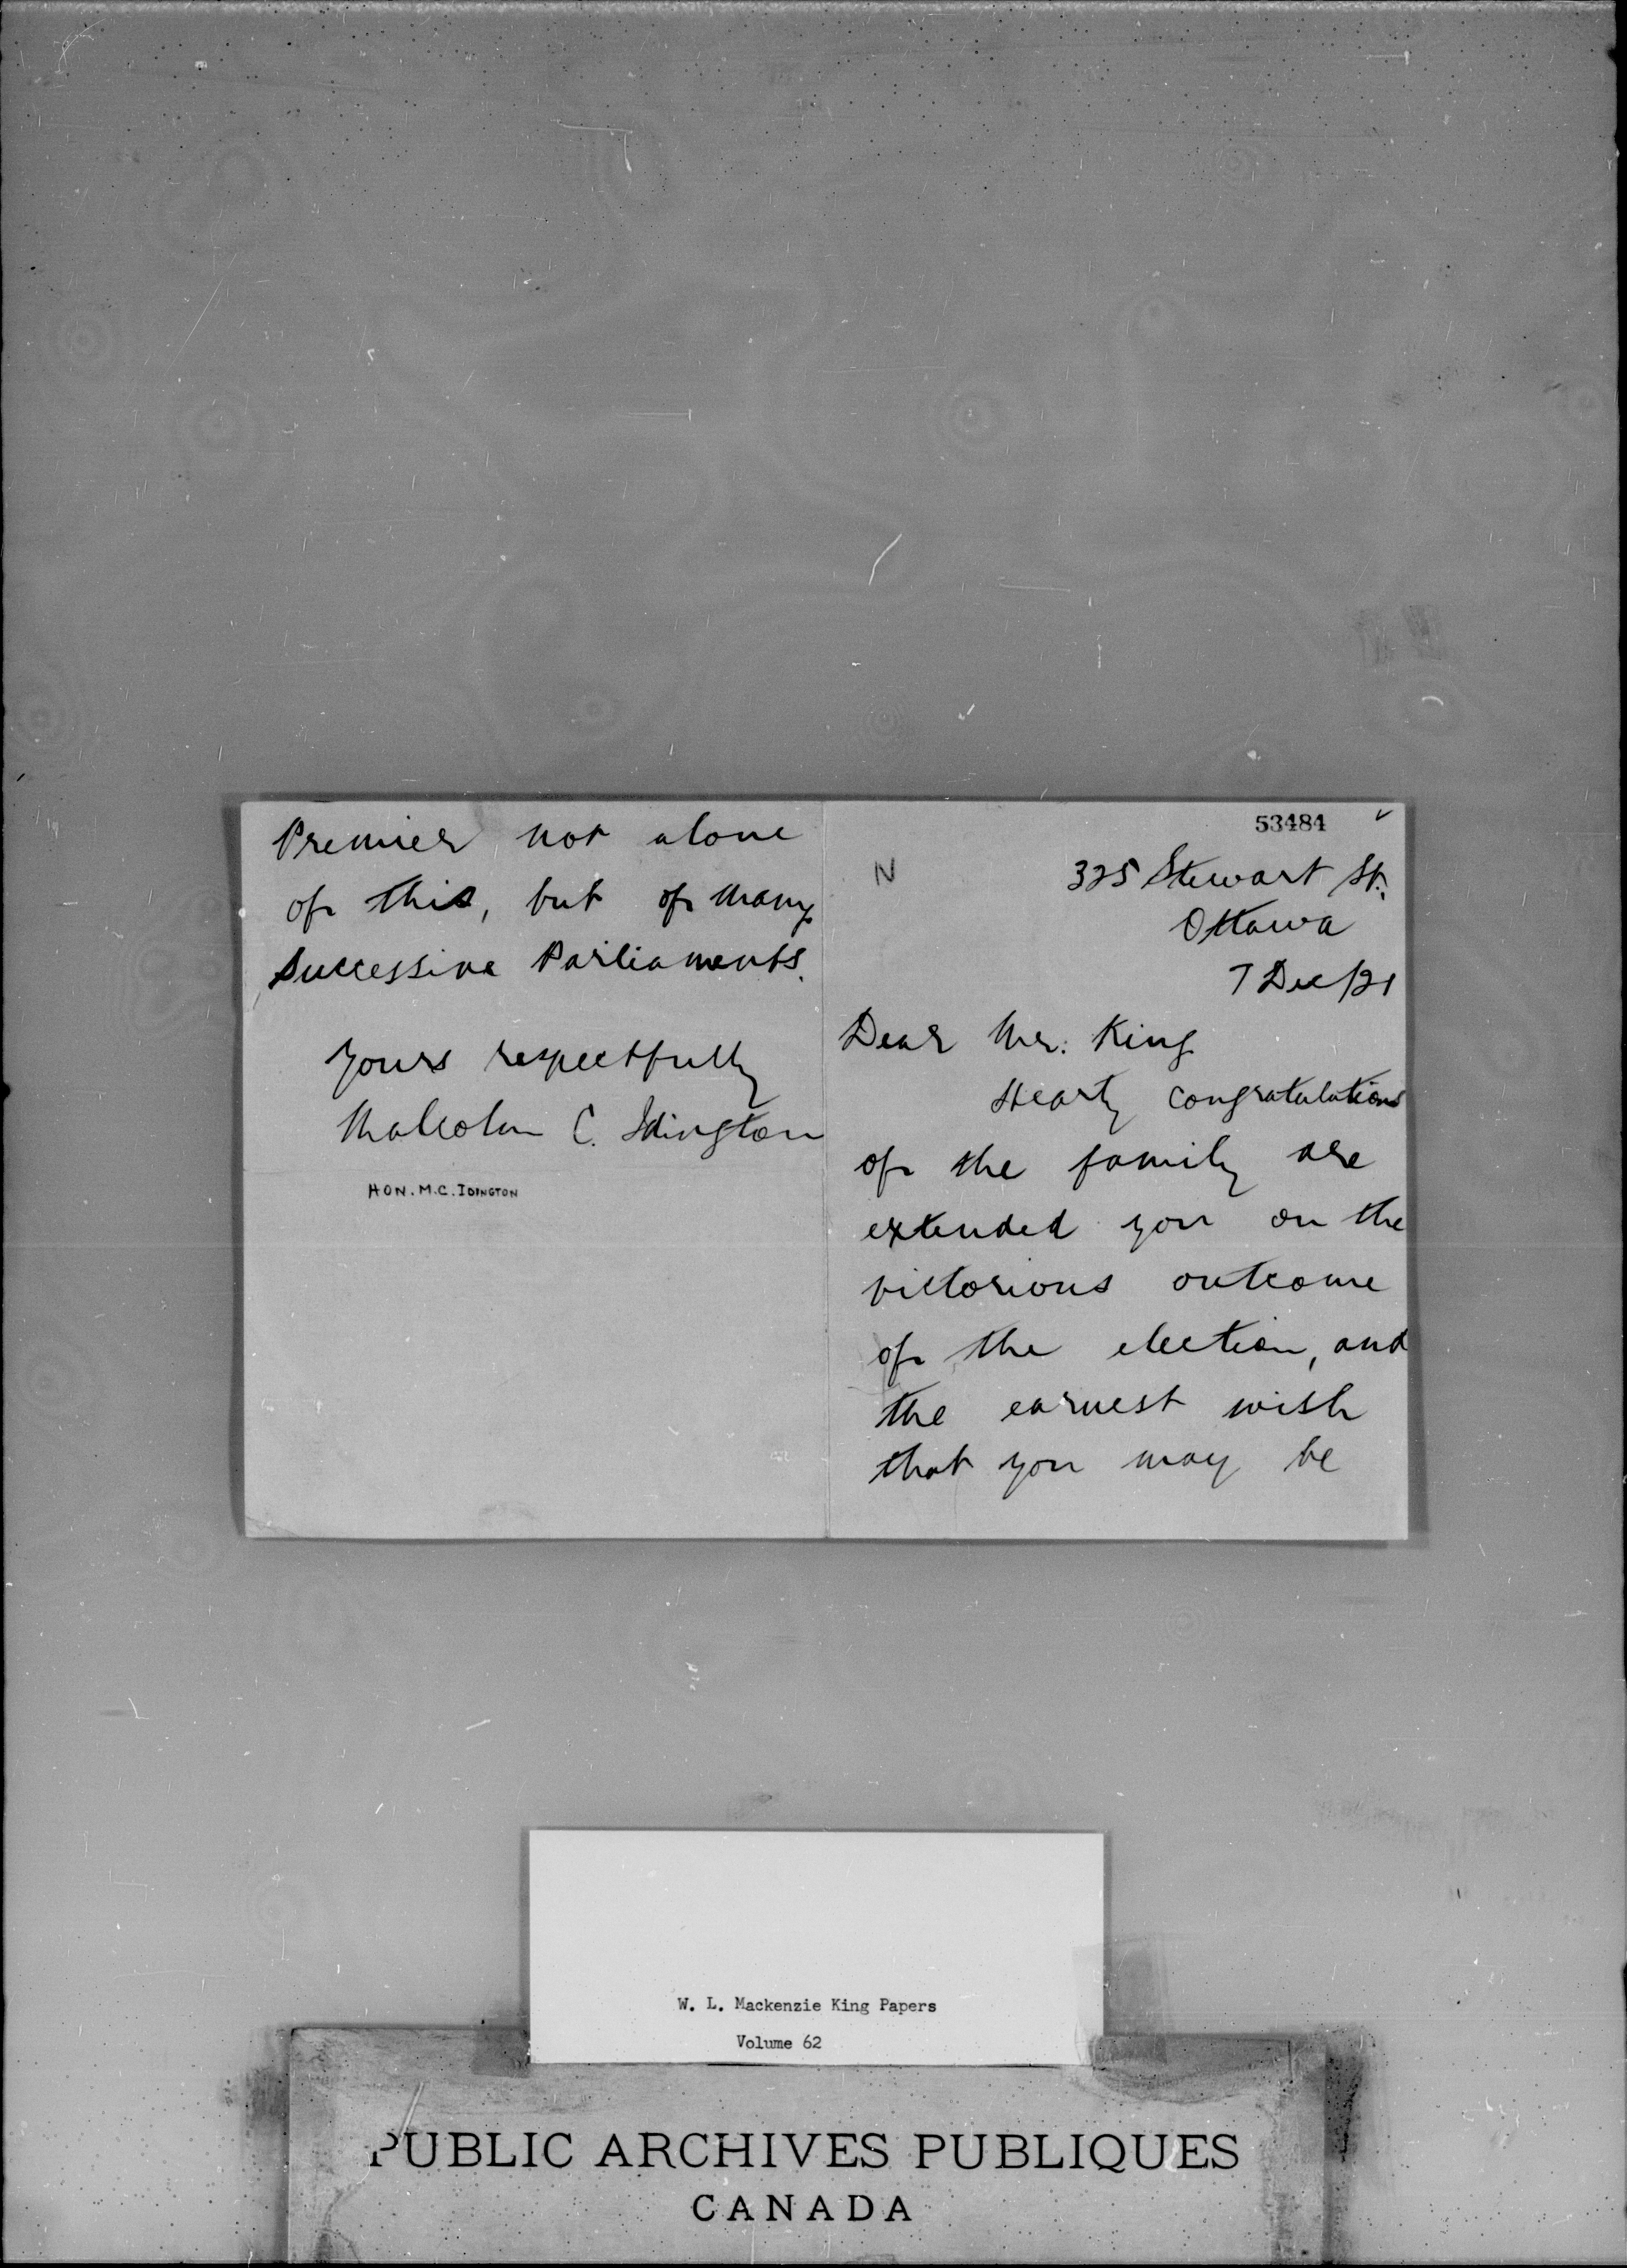 53484
N
325 Stewart St.,
Ottawa
7 Dec/21
Dear Mr. King
Hearty congratulations
of the family are
extended you on the
victorious outcome
of the election, and
the earnest wish
that you may be
Premier not alone
of this, but of many
successive Parliaments.
Yours respectfully
Malcolm C. Idington
HON. M.C. IDINGTON
W. L. Mackenzie King Papers
Volume 62
PUBLIC ARCHIVES PUBLIQUES
CANADA